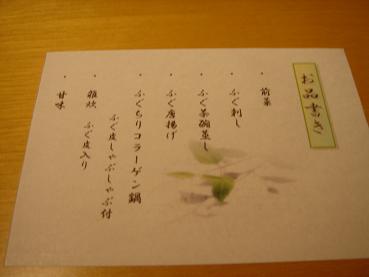 お品書き
・ 前菜
・ ふぐ刺し
・ ふぐ茶碗蒸し
・ ふぐ唐揚げ
・ ふぐちりコラーゲン鍋
ふぐ皮しゃぶしゃぶ付
・ 雑炊 ふぐ皮入り
・ 甘味